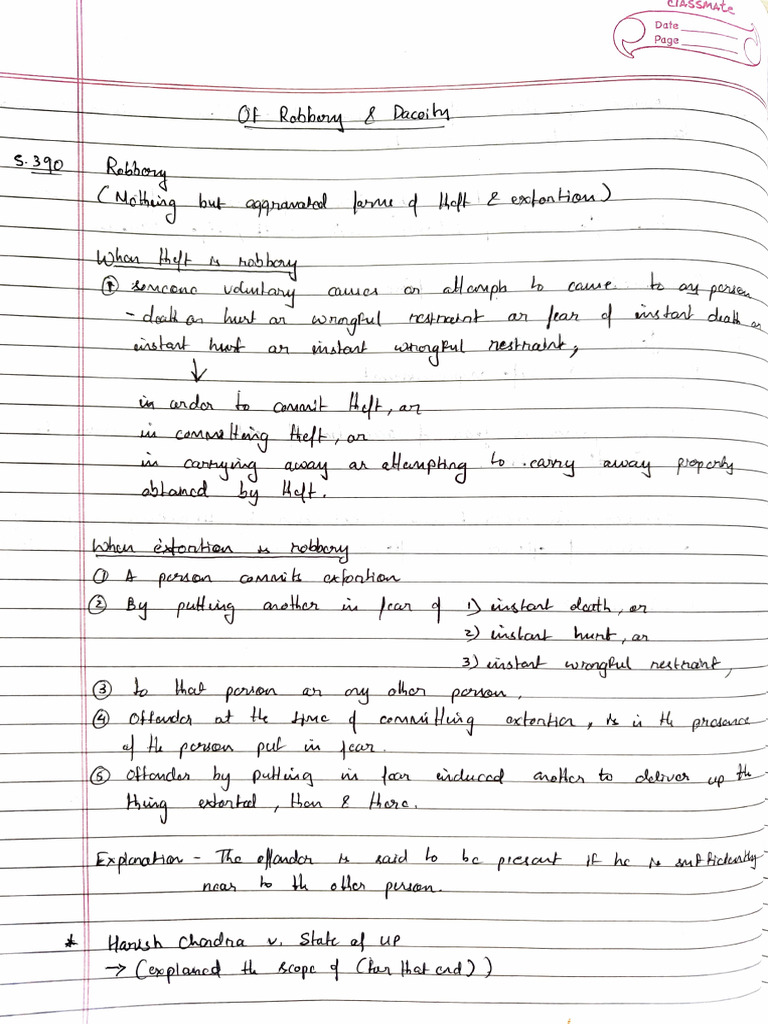 classmate
Date
Page
Of Robbery & Dacoity
S.390 Robbery
(Nothing but aggravated forms of theft & extortion)
When theft is robbery
① someone voluntary causes or attempts to cause to any person
- death or hurt or wrongful restraint or fear of instant death or
instant hurt or instant wrongful restraint,
↓
in order to commit theft, or
in committing theft, or
in carrying away or attempting to carry away property
obtained by theft.
When extortion is robbery
① A person commits extortion
② By putting another in fear of 1) instant death, or
2) instant hurt, or
3) instant wrongful restraint,
③ to that person or any other person.
④ Offender at the time of committing extortion, is in the presence
of the person put in fear.
⑤ Offender by putting in fear induced another to deliver up the
thing extorted, then & there.
Explanation - The offender is said to be present if he is sufficiently
near to the other person.
* Harish Chandra v. State of UP
→ (explained the scope of (for that end))